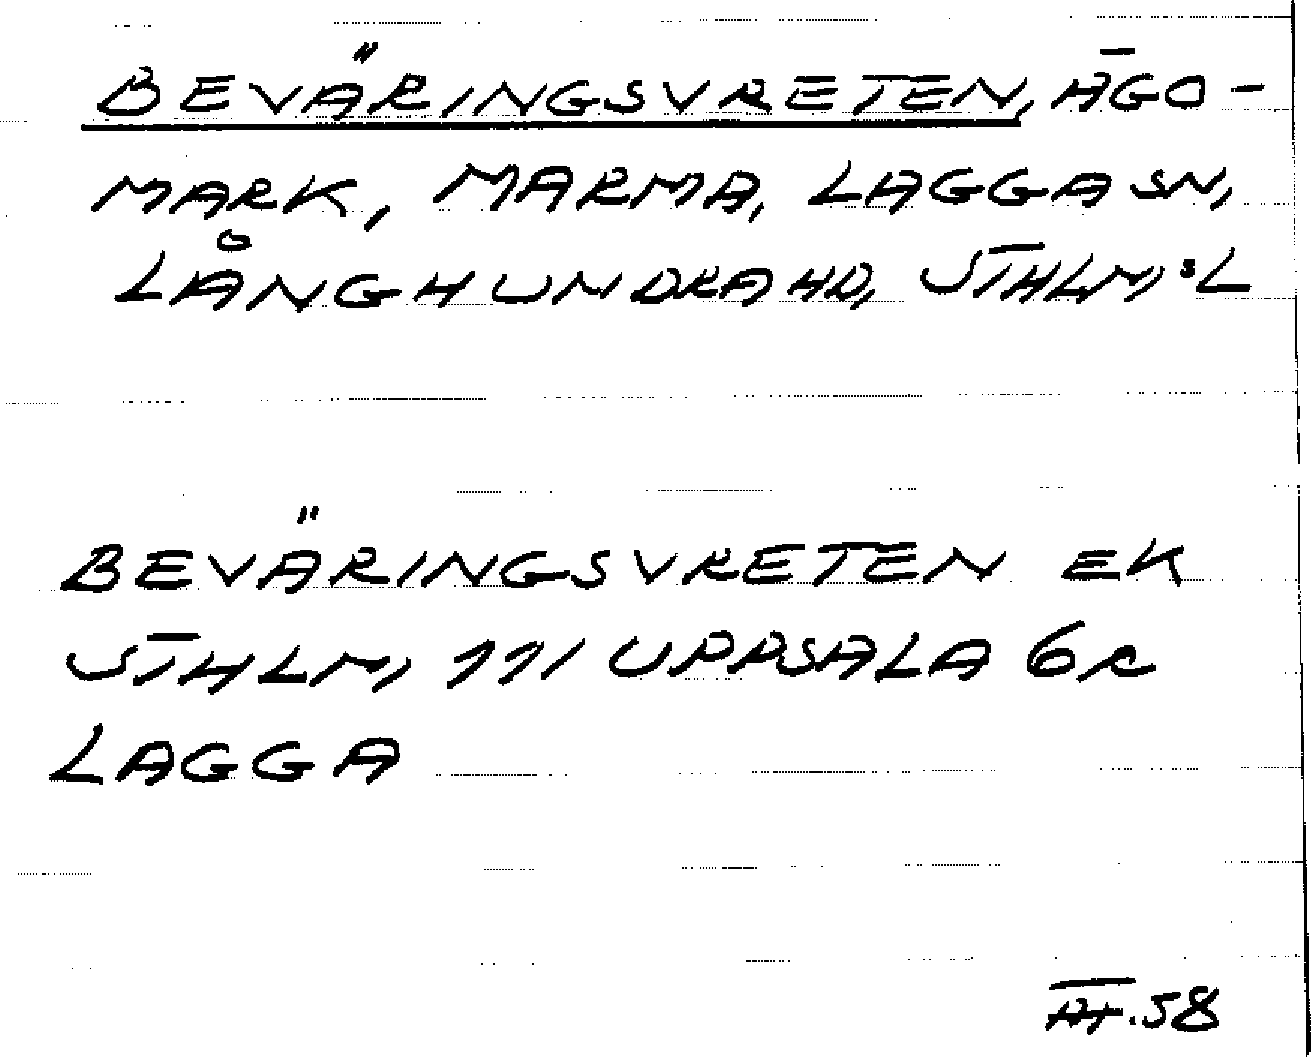 BEVÄRINGSVRETEN, ÄGO-
MARK, MARMA, LAGGA SN,
LÅNGHUNDRA HD, STHLM:L
BEVÄRINGSVRETEN EK
STHLM, 111 UPPSALA 6c
LAGGA
58